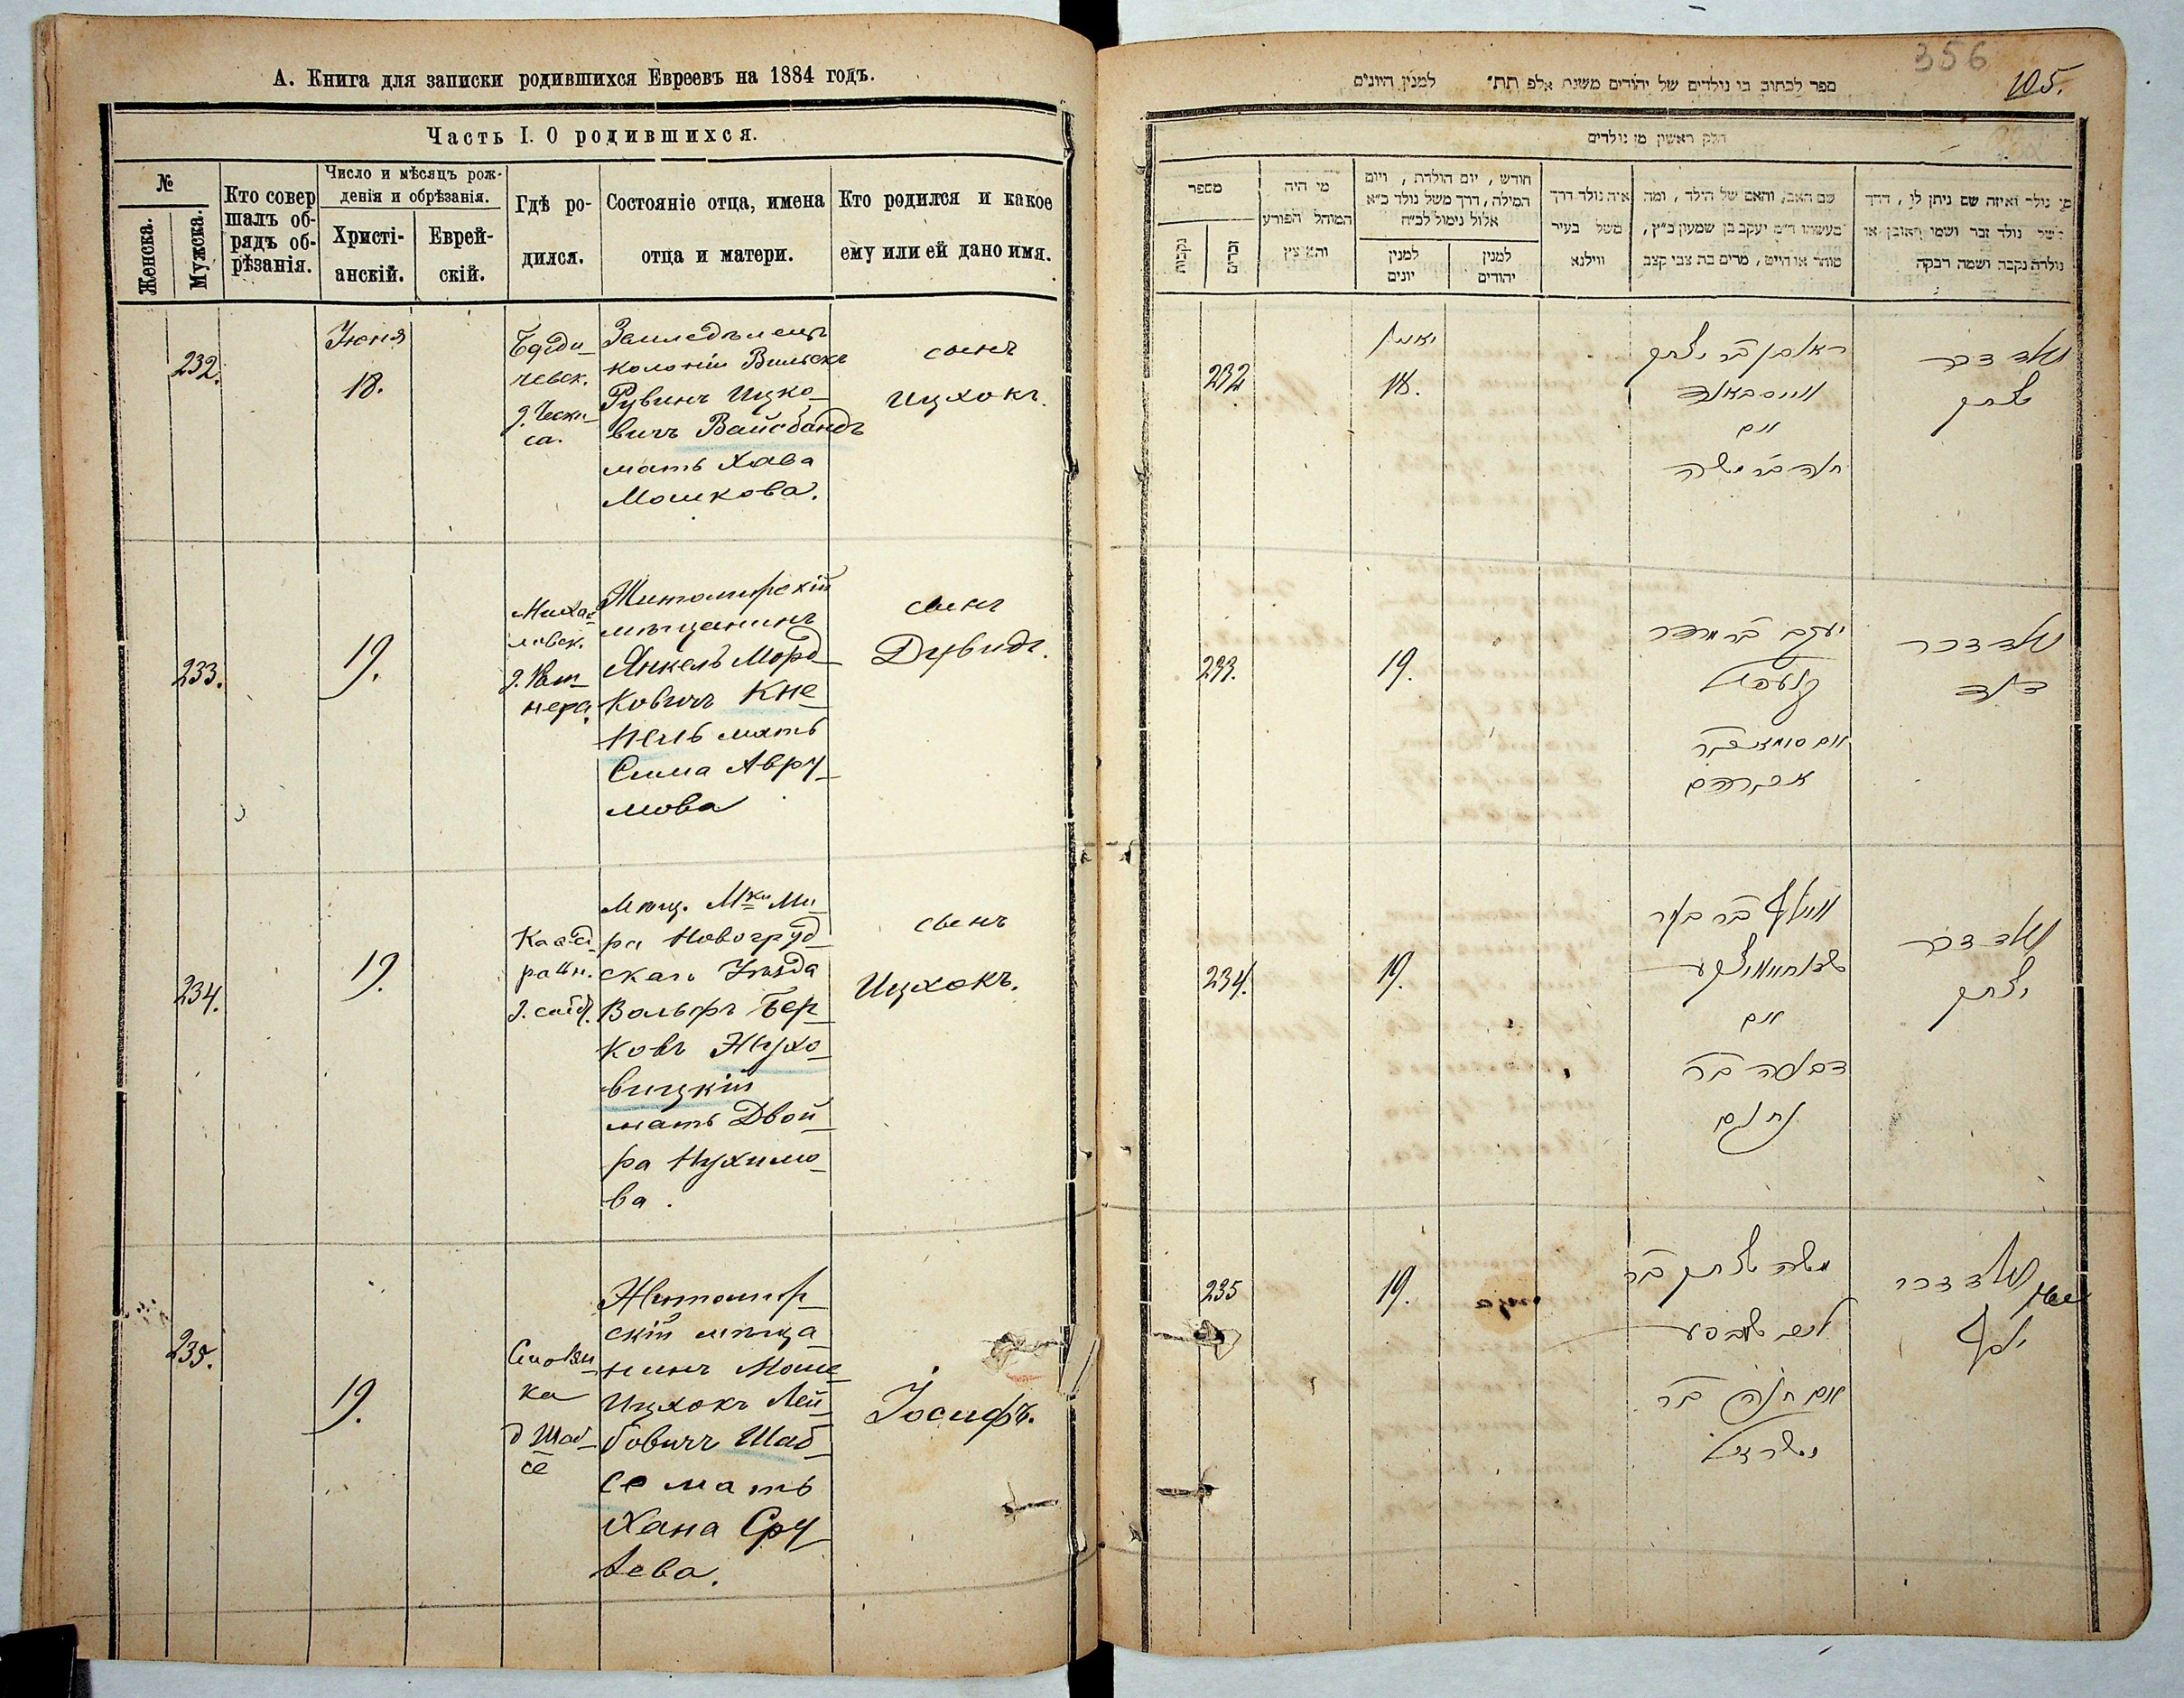 А. Книга для записки родившихся Евреевъ на 1884 годъ.
Часть I. О родившихся.
№
Женска.
Мужска.
Кто совер
шалъ об-
рядъ об-
рѣзанія.
Число и мѣсяцъ рож-
денія и обрѣзанія.
Христі-
анскій.
Еврей-
скій.
Гдѣ ро-
дился.
Состояніе отца, имена
отца и матери.
Кто родился и какое
ему или ей дано имя.
232.
Июня
18.
Бѣрди-
чевск.
Земледѣлецъ
колоніи Вильскъ
Рувинъ Ицко-
вичъ Вайсбандъ
мать Хава
Мошкова.
сынъ
Ицхокъ.
233.
19.
Михай-
ловск.
нера.
Житомирскій
мѣщанинъ
Янкель Морд-
ковичъ Кне-
пель мать
Сима Авру-
мова
сынъ
Дувидъ.
234.
19.
Мѣщ. Мки Ми-
ра Новогруд-
скаго Уѣзда
Вольфъ Бер-
ковъ Жухо-
вицкій
мать Двой-
ра Нухимо-
ва.
сынъ
Ицхокъ.
235.
19.
ка
д Шаб-
се
Житомир-
скій мѣща-
нинъ Моше
Ицхокъ Лей-
бовичъ Шаб-
се мать
Хана Сру-
лева.
Іосифъ.
356
105.
ספר לכתוב בו נולדים של יהודים משנת אלף תת״ למנין היונים
חלק ראשון מן נולדים
מספר
נקבות
זכרים
מי היה
המוהל הפורע
והמוצץ
חודש, יום הולדת, ויום
המילה, דרך משל נולד כ״א
אלול נימול לכ״ח
למנין
יונים
למנין
יהודים
איה נולד דרך
משל בעיר
ווילנא
שם האב, והאם של הילד, ומה
מעשהו ד״מ יעקב בן שמעון כ״ץ,
סוחר או חייט, מרים בת צבי קצב
מי נולד ואיזה שם ניתן לו, דרך
משל נולד זכר ושמו ראובן או
נולדה נקבה ושמה רבקה
232
יאוני
18.
ראובן בר יצחק
ווייסבאנד
אם
חוה בר משה
נולד זכר
יצחק
233.
19.
יעקב בר מרדכי
קנעפיל
אם סימא בר
אברהם
נולד זכר
דוד
234.
19.
וואלף בר בער
אם
דבורה בר
נחום
נולד זכר
יצחק
235
19.
משה יצחק בר
לייב שאבסע
אם חנה בר
ישראל
נולד זכר
יוסף